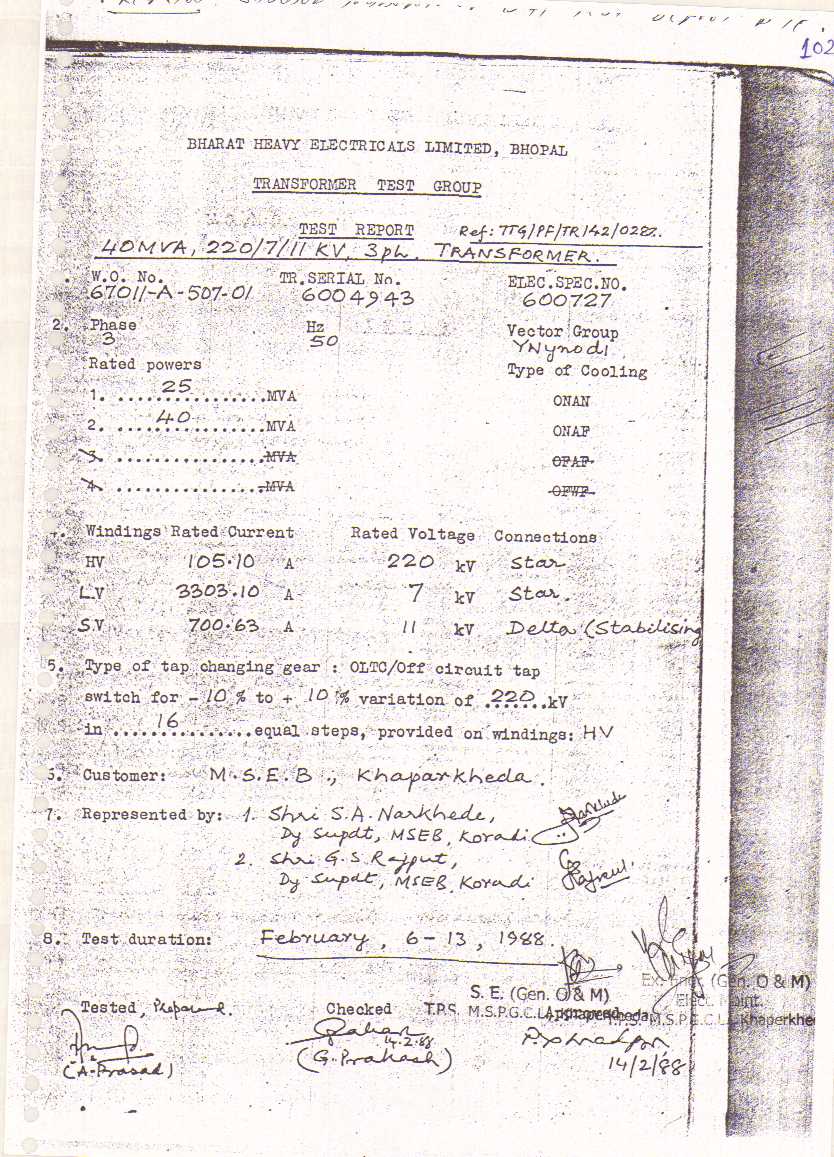 102
BHARAT HEAVY ELECTRICALS LIMITED, BHOPAL
TRANSFORMER TEST GROUP
TEST REPORT Ref: TTG/PF/TR/42/0287.
40MVA, 220/7/11 KV, 3ph. TRANSFORMER.
W.O. No. TR.SERIAL No. ELEC.SPEC.NO.
67011-A-507-01 6004943 600727
2. Phase Hz Vector Group
3 50 YNynod1
Rated powers Type of Cooling
1. 25 MVA ONAN
2. 40 MVA ONAF
3. ................MVA OFAF
4. ................MVA OFWF
4. Windings Rated Current Rated Voltage Connections
HV 105.10 A 220 kV Star
L.V 3303.10 A 7 kV Star.
S.V 700.63 A 11 kV Delta (Stabilising
5. Type of tap changing gear : OLTC/Off circuit tap
switch for - 10 % to + 10 % variation of 220 kV
in 16 equal steps, provided on windings: HV
6. Customer: M.S.E.B ., Khaparkheda.
7. Represented by: 1. Shri S.A. Narkhede,
Dy Supdt, MSEB, Koradi
2. Shri G.S Rajput,
Dy Supdt, MSEB, Koradi
8. Test duration: February, 6-13, 1988.
S. E. (Gen. O & M) (Gen. O & M)
Tested, Prepared. Checked T.P.S. M.S.P.G.C.L. Khaperkheda T.P.S. M.S.P.G.C.L. Khaperkhe
14.2.88
(A. Prasad) (G. Prakash) 14/2/88